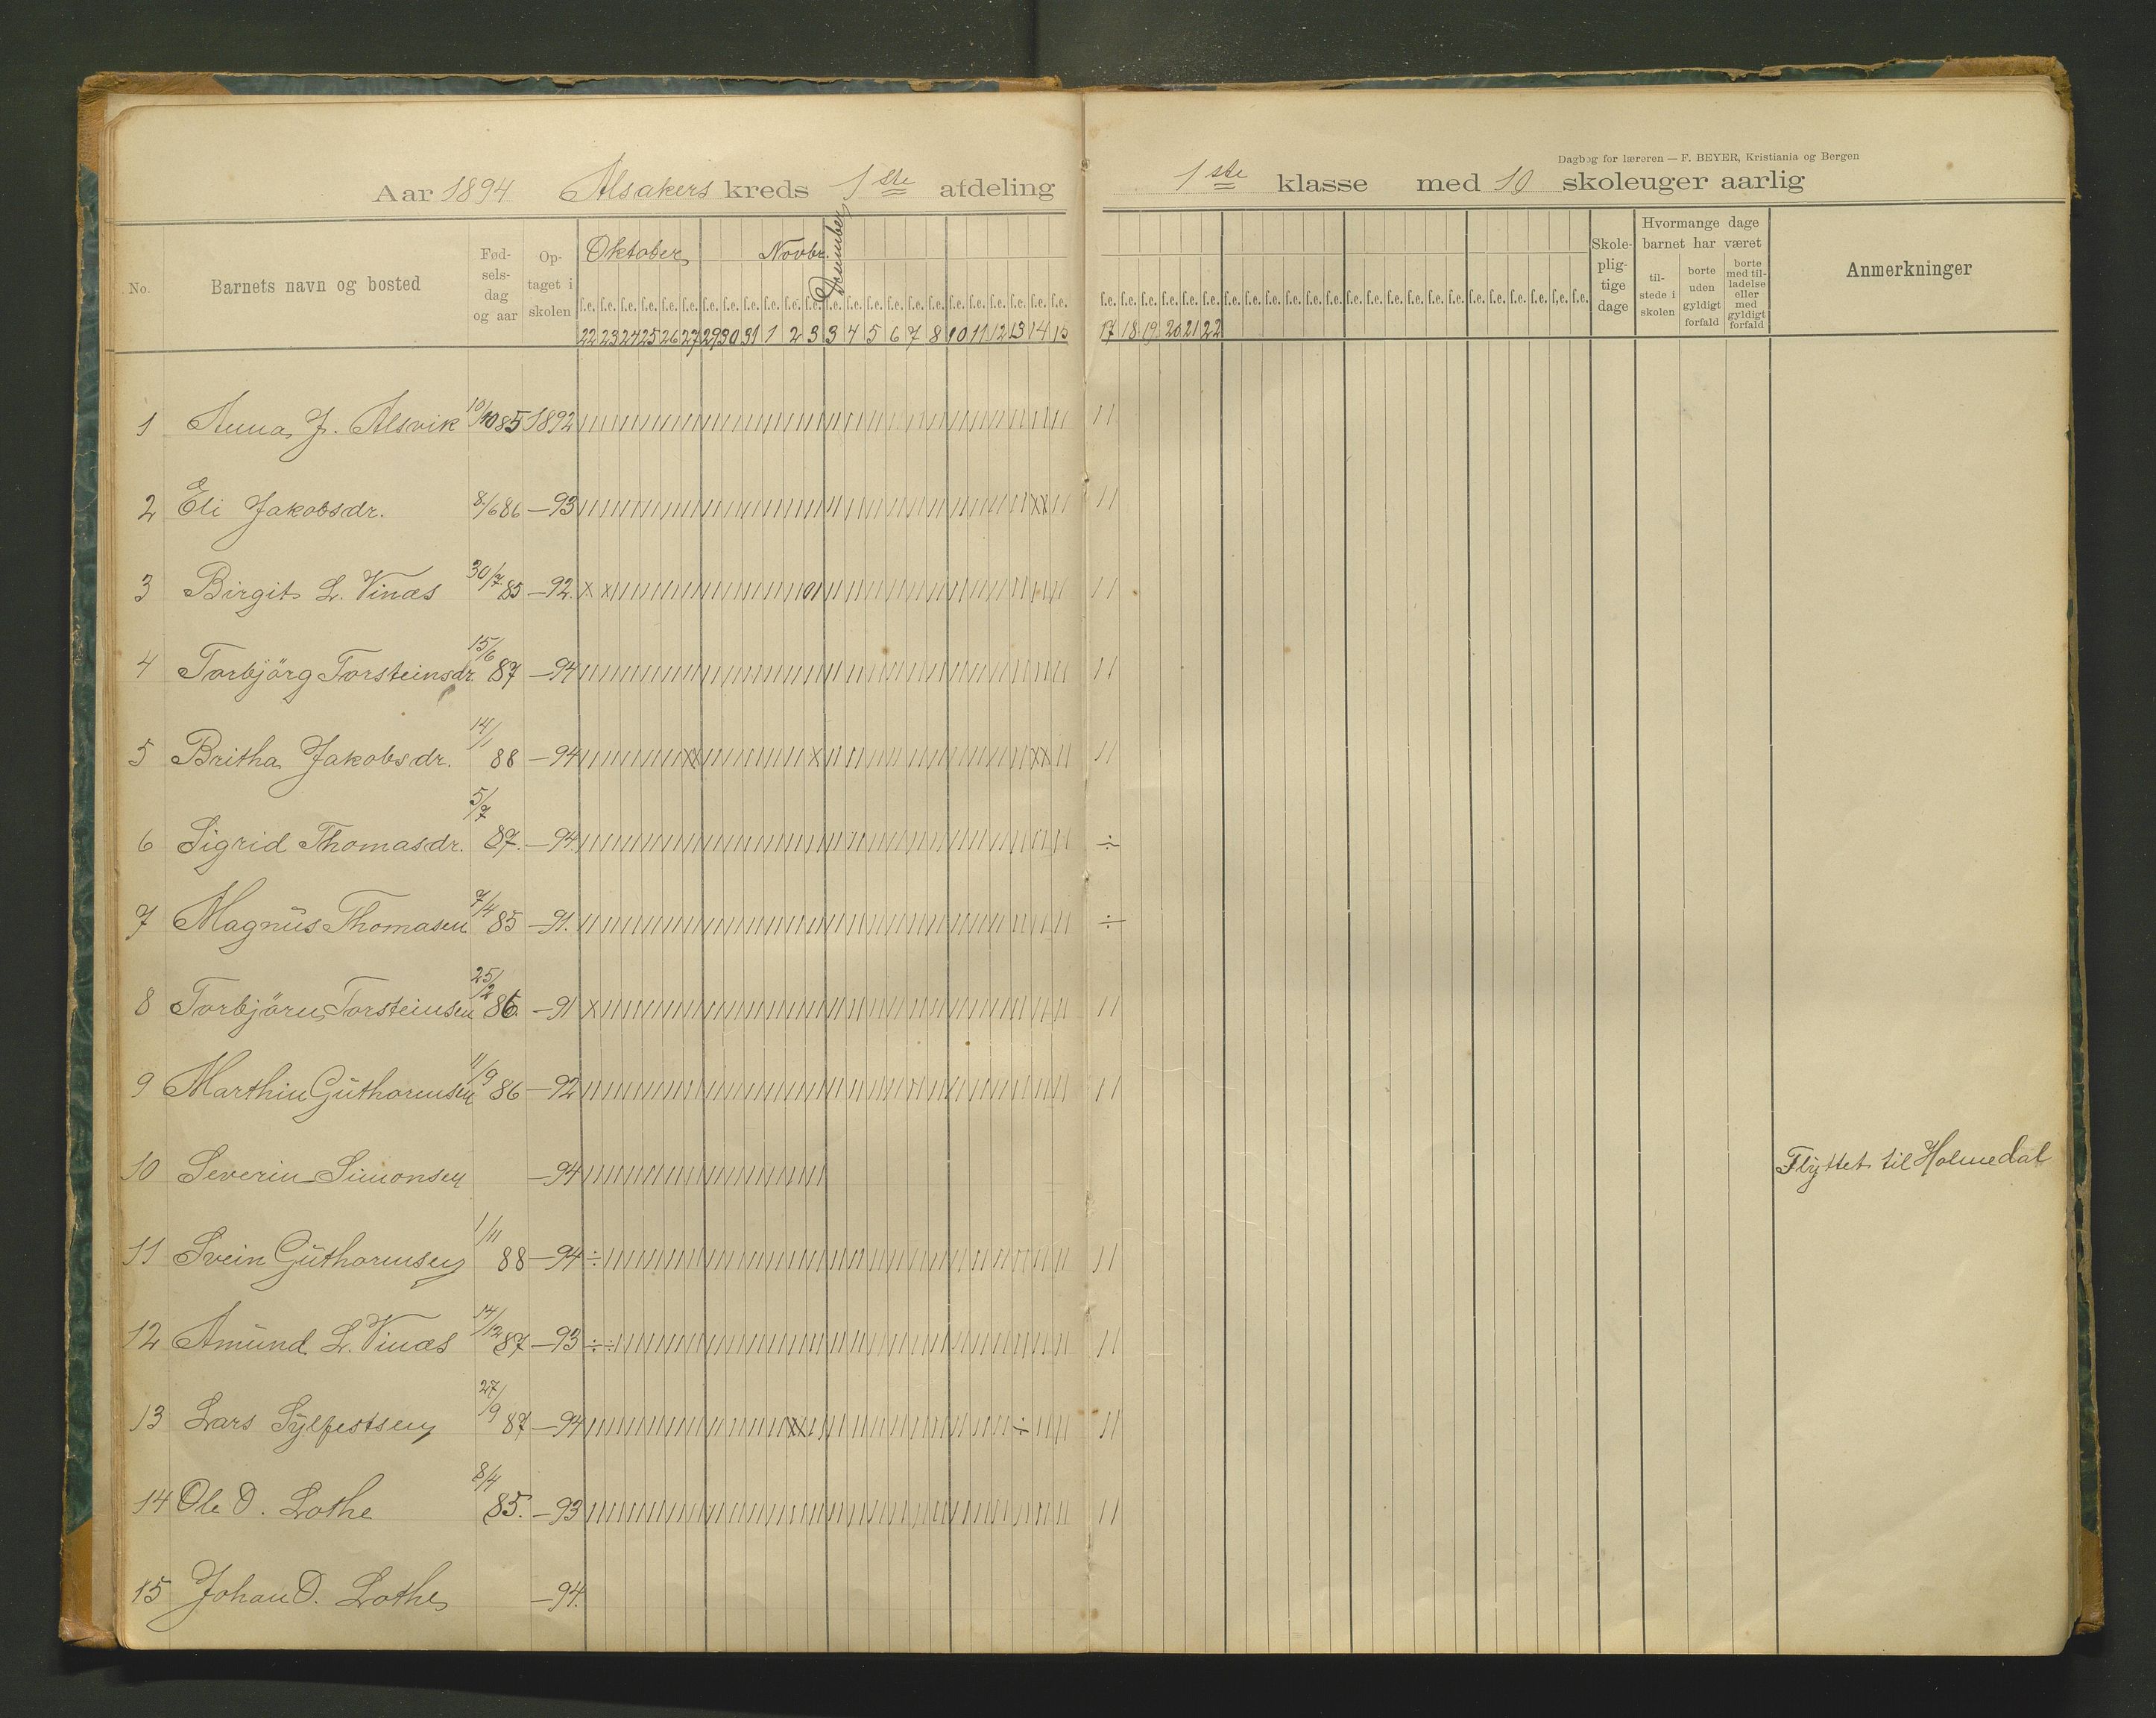 Dagbog for læreren — F. BEYER, Kristiania og Bergen
Aar 1894 Alsakers kreds 1ste afdeling 1ste klasse med 10 skoleuger aarlig
No.
Barnets navn og bosted
Fød-
sels-
dag
og aar
Op-
taget i
skolen
Oktober Novbr. December
f.e. f.e. f.e. f.e. f.e. f.e. f.e. f.e. f.e. f.e. f.e. f.e. f.e. f.e. f.e. f.e. f.e. f.e. f.e. f.e. f.e. f.e. f.e. f.e.
22 23 24 25 26 27 29 30 31 1 2 3 3 4 5 6 7 8 10 11 12 13 14 15
f.e. f.e. f.e. f.e. f.e. f.e. f.e. f.e. f.e. f.e. f.e. f.e. f.e. f.e. f.e. f.e. f.e. f.e. f.e. f.e. f.e. f.e. f.e. f.e.
17 18 19 20 21 22
Skole-
plig-
tige
dage
Hvormange dage
barnet har været
til-
stede i
skolen
borte
uden
gyldigt
forfald
borte
med til-
ladelse
eller
med
gyldigt
forfald
Anmerkninger
1 Anna J. Alsvik 10/10 85 1892
2 Eli Jakobsdr. 8/6 86 —93
3 Birgit L. Vinæs 30/7 85 —92.
4 Torbjörg Torsteinsdr. 15/6 87 —94
5 Britha Jakobsdr. 14/1 88 —94
6 Sigrid Thomasdr. 5/7 87. —94
7 Magnus Thomasen 7/4 85 —91.
8 Torbjörn Torsteinsen 25/2 86. —91
9 Marthin Guthormsen 11/9 86 —92
10 Severin Simonsen —94 Flyttet til Holmedal
11 Svein Guthormsen 1/11 88 —94
12 Amund L. Vinæs 14/12 87 —93
13 Lars Sylfestsen 27/9 87 —94
14 Ole O. Lothe 8/4 85. —93
15 Johan O. Lothe —94.